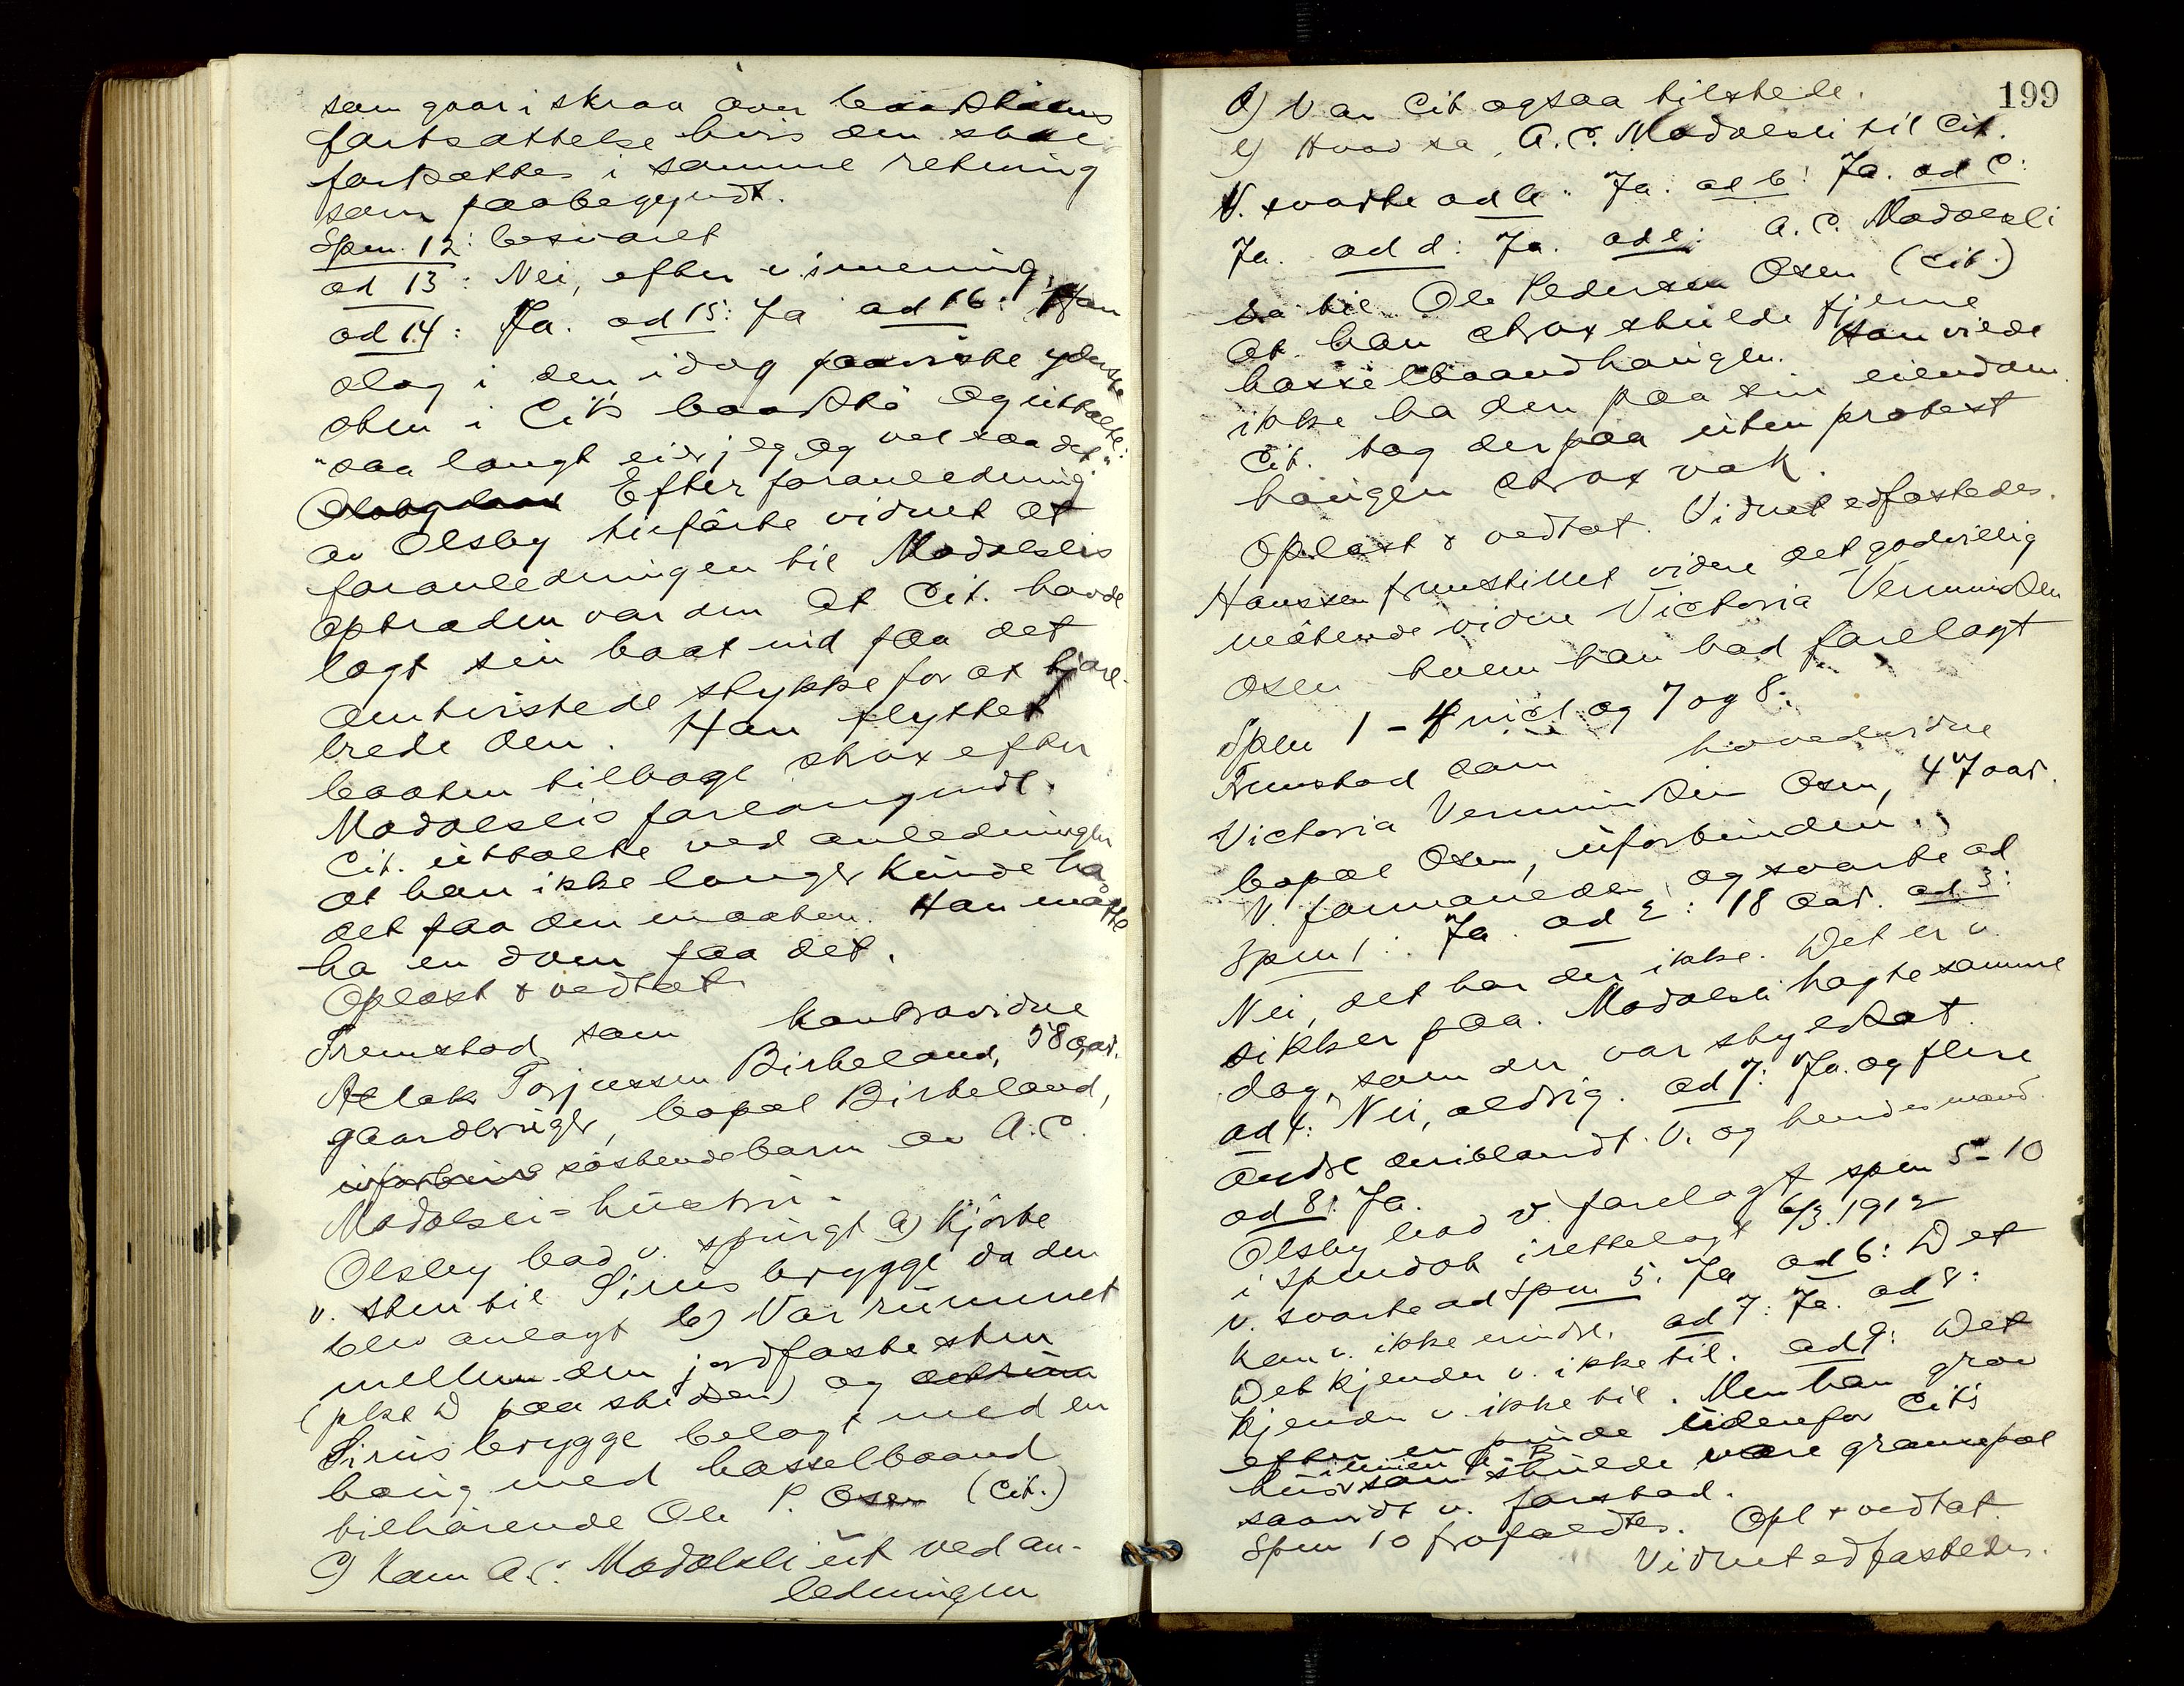 som gaar i skraa over baadstöens
fortsættelse hvis den skal
fortsættes i samme retning
som paabegyndt.
Spm. 12: besvaret
ad 13: Nei, efter v.s mening.
ad 14: Ja. ad 15: Ja ad 16: Han
slog i den idag paaviste yderste
sten i Cits baadstö og uttalte:
"saa langt eier jeg og vel saa det"
Efter foranledning
av Olsby tilförte vidnet at
foranledningen til Modalslis
optræden var den at Cit. havde
lagt sin baat ind paa det
omtvistede stykke for at tjære-
brede den. Han flyttet
baaten tilbage strax efter
Modalslis forlangende.
Cit. uttalte ved anledningen
at han ikke længer kunde ha
det paa den maaten. Han maatte
ha en dom paa det.
Oplæst & vedtat
Fremstod som kontravidne
Aslak Torjussen Birkeland, 58 aar.
gaardbruger, bopæl Birkeland,
söskendebarn av A.C.
Modalsli's hustru.
Olsby bad v. spurgt a) Kjörte
v. sten til Sirius brygge da den
blev anlagt b) Var rummet
mellem den jordfaste sten
(pkt D paa skissen) og
Sirius brygge belagt med en
haug med hasselbaand
tilhörende Ole P. Osen (Cit.)
c) Kom A.C. Modalsli ut ved an-
ledningen
199
d) Var Cit ogsaa tilstede.
e) Hvad sa A.C. Modalsli til Cit.
V. svarte ad a: Ja. ad b: Ja. ad c:
Ja. ad d: Ja. ad e: A.C. Modalsli
sa til Ole Pedersen Osen (Cit.)
at han strax skulde fjerne
hasselbaandhaugen. Han vilde
ikke ha den paa sin eiendom.
Cit. tog derpaa uten protest
haugen strax væk.
Oplæst & vedtat. Vidnet edfæstedes.
Hanssen fremstillet videre det godvillig
mötende vidne Victoria Vermundsen
Osen hvem han bad forelagt
Spm 1 - 4 incl og 7 og 8.
Fremstod som hovedvidne
Victoria Vermundsen Osen, 47 aar.
bopæl Osen, uforbunden.
V. formanedes og svarte ad
Spm 1: Ja. ad 2: 18 aar. ad 3:
Nei, det har den ikke. Det er v.
sikker paa. Modalsli hagte samme
dag, som der var skyldsat.
ad 4: Nei, aldrig. ad 7: Ja. og flere
andre deriblandt. V. og hendes mand.
ad 8: Ja.
Olsby bad v. forelagt spm 5-10
i Spmdok irettelagt 6/3. 1912
v. svarte ad Spm 5. Ja ad 6: Det
kan v. ikke erindre. ad 7: Ja. ad 8:
Det kjender v. ikke til. ad 9: Det
kjender v. ikke til. Men han grov
efter en pinde udenfor Cit's
hus som skulde være grænsepæl
saavidt v. forstod.
Spm 10 frafaldtes. Opl & vedtat.
Vidnet edfæstedes.